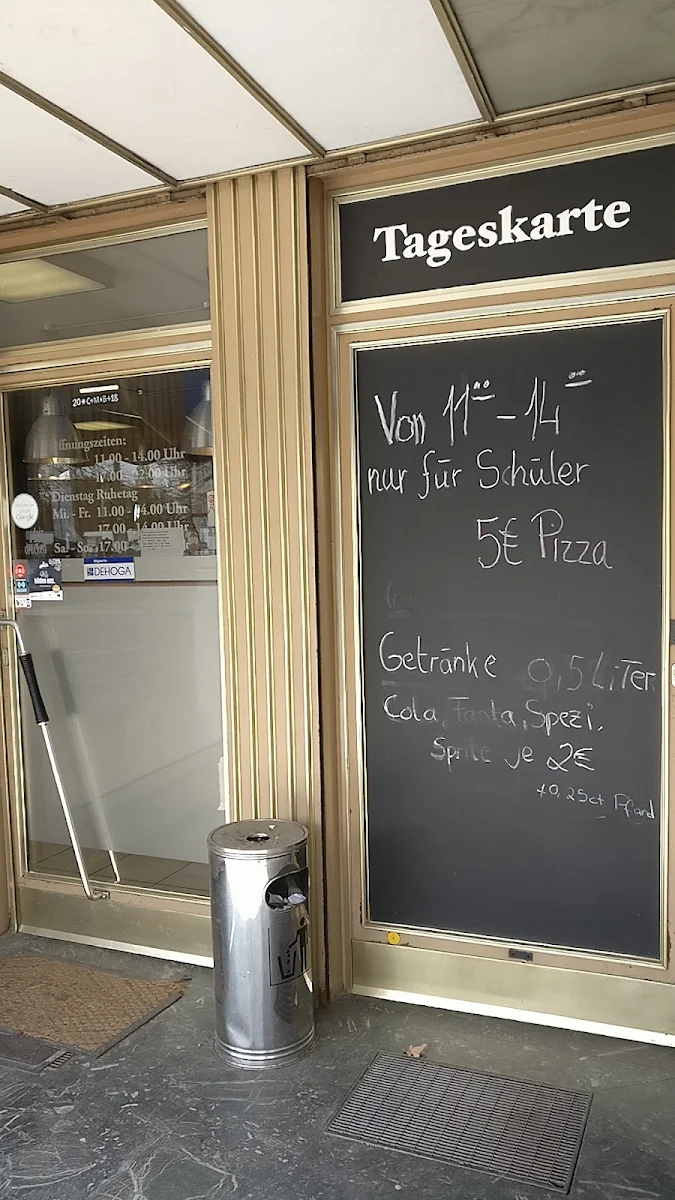 Tageskarte
Von 11⁰⁰ - 14⁰⁰
nur für Schüler
5€ Pizza
Getränke 0,5 LiTer
Cola, Fanta, Spezi,
Sprite je 2€
+0,25ct Pfand
20*C+M+B+18
Öffnungszeiten:
11.00 - 14.00 Uhr
Dienstag Ruhetag
Mi. - Fr. 11.00 - 14.00 Uhr
Sa. - So. 17.00
Google
DEHOGA